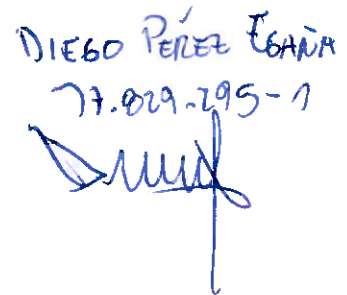 DIEGO PÉREZ EGAÑA
17.829.295-1